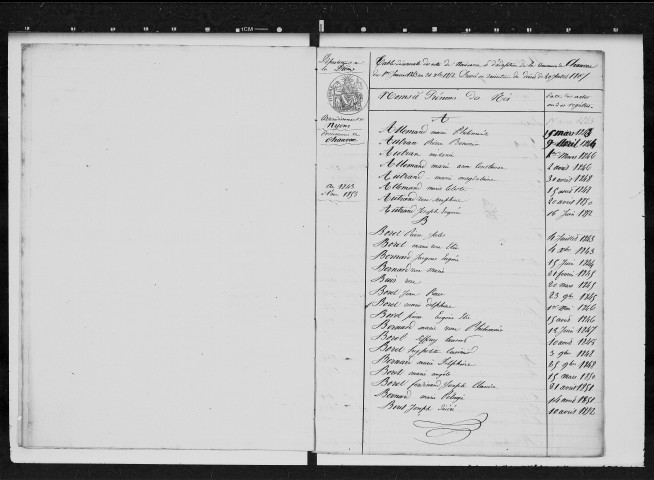 Département de
la Drôme
Arrondissement de
Nyons
Commune de
Chauvac
De 1843
à 1853
Table décennale des actes de Naissance et d'adoption de la Commune de Chauvac
du 1er Janvier 1843 au 31 Xbre 1852 Dressé en exécution du décret du 20 Juillet 1807
Noms et Prénoms des Nés
Date des actes
ou des registres
A
Allemand marie Philoménie 19 mars 1843
Autran Pierre 9 avril 1844
Autran 1er Mars 1846
Allemand marie anne Constance 2 avril 1846
Autrand marie magdelaine 30 avril 1848
Allemand marie 15 avril 1848
Autrand 20 avril 1850
Autrand Joseph Eugène 16 Juin 1852
B
Borel Pierre Jules 4 Juillet 1843
Borel marie rose 4 Xbre 1843
Bernard Jacques Eugène 15 Juin 1844
Bernard rose marie 21 février 1845
Buis rose 20 mars 1845
Borel Jean Pierre 23 9bre 1845
Borel marie delphine 1er 1846
Borel pierre Eugène 15 avril 1846
Bernard marie rose Philoménie 13 Juin 1847
Borel 10 avril 1848
Borel hyppolite 3 9bre 1848
Bernard marie Delphine 25 9bre 1848
Borel marie angèle 15 mars 1850
Borel ferdinand Joseph 21 avril 1851
Bernard marie Pélagie 14 avril 1851
Borel Joseph Désiré 10 avril 1852